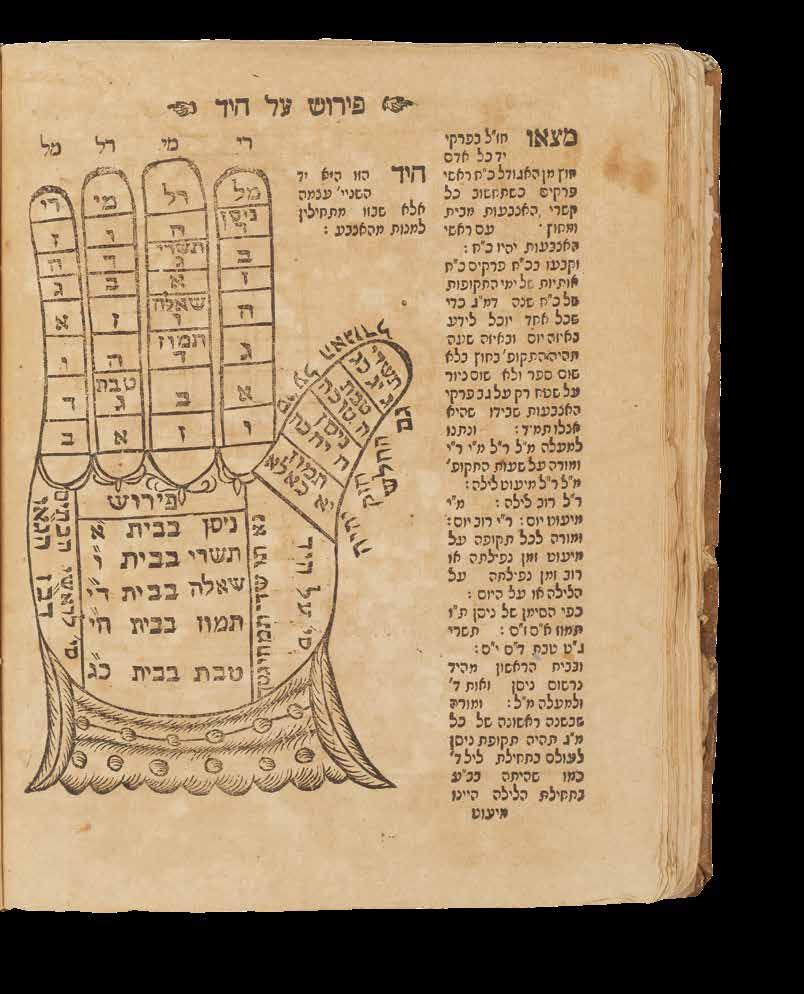 פירוש על היד
מצאו חז"ל בפרקי
יד כל אדם
חוץ מן האגודל כ"ח ראשי
פרקים כשתחשוב כל
קשרי האצבעות מבית
ומחוץ עם ראשי
האצבעות יהיו כ"ח :
וקבעו בכ"ח פרקים כ"ח
אותיות של ימי התקופות
של כ"ח שנה דמ"ג כדי
שכל אחד יוכל לידע
באיזה יום ובאיזה שעה
תהיה התקופ' בחוץ בלא
שום ספר ולא שום ניור
על שטח רק על גב פרקי
האצבעות שבידו שהיא
אצלו תמיד : ונתנו
למעלה מ"ל ר"ל מ"י ר"י
ומורה על שעות התקופ'
מ"ל ר"ל מיעוט לילה :
ר"ל רוב לילה : מ"י
מיעוט יום : ר"י רוב יום :
ומורה לכל תקופה על
מיעוט זמן נפילתה או
רוב זמן נפילתה על
הלילה או על היום :
כפי הסימן של ניסן ת"ו
תמוז א"ם ז"ם : תשרי
ג"ט טבת ד"ם י"ם :
ובבית הראשון מהיד
נרשום ניסן ואות ד'
ולמעלה מ"ל : ומורה
שבשנה ראשונה של כל
מ"ג תהיה תקופת ניסן
לעולם בתחילת ליל ד'
כמו שהיתה בב"ע
בתחילת הלילה היינו
מיעוט
היד הזו היא יד
השניי' עצמה
אלא שבזו מתחילין
למנות מהאצבע :
רי מי רל מל
מל
ניסן
ד
ב
ז
ה
ג
א
ו
רל
ה
תשרי
ג
א
שאלה
ו
תמוז
ד
ב
ז
מי
ו
ד
ב
ז
ה
טבת
ג
א
רי
ז
ה
ג
א
ו
ד
ב
תשרי
טבת
ניסן
תמוז
פירוש
ניסן בבית א'
תשרי בבית י"א
שאלה בבית ד'
תמוז בבית ה'
טבת בבית כג
סי' על היד